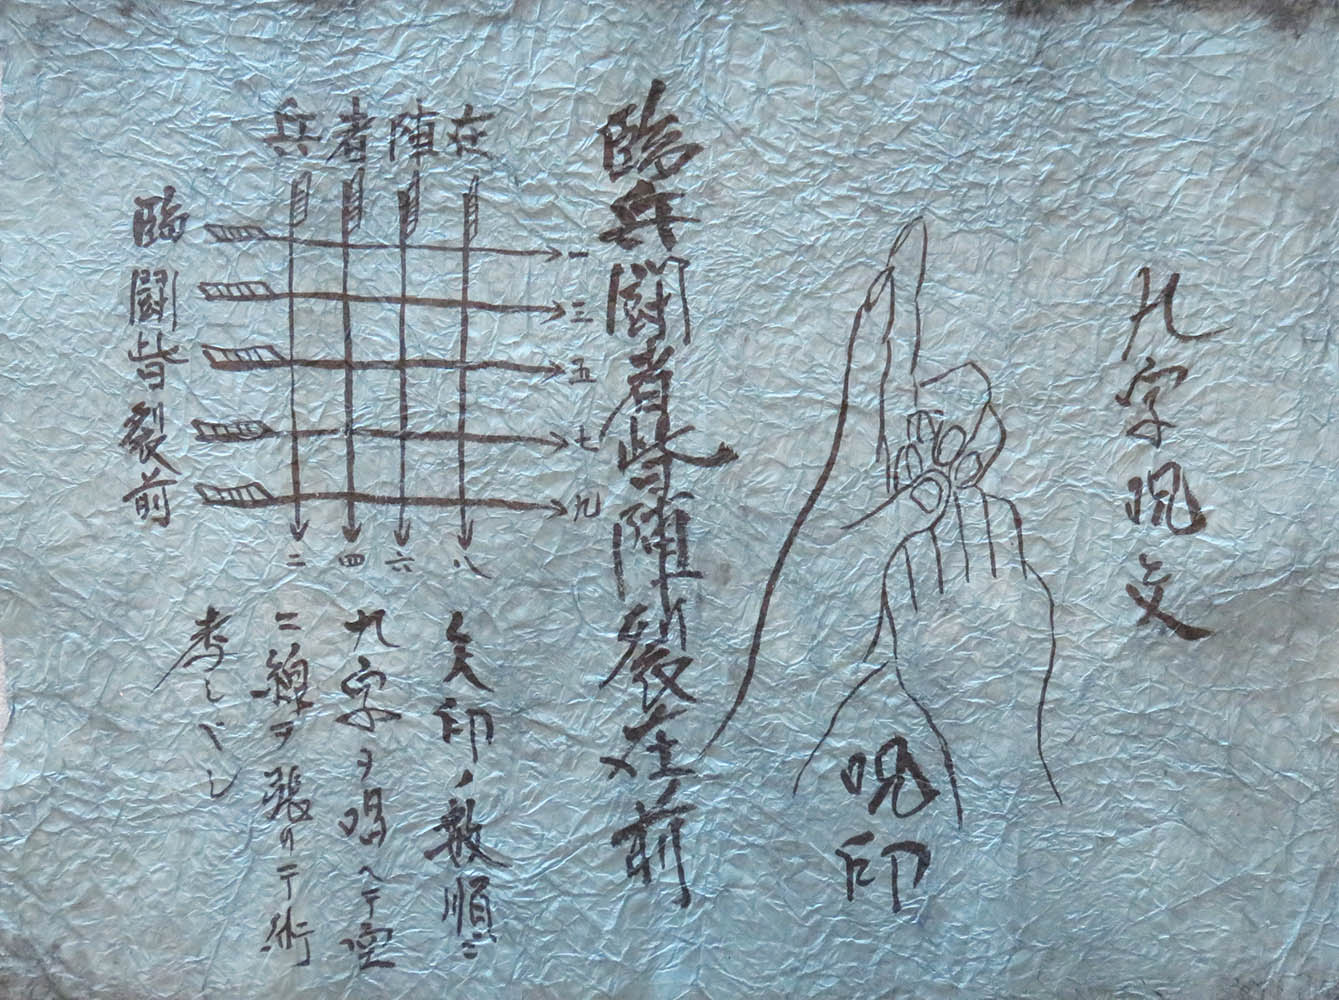 九字呪文
呪印
臨兵闘者皆陣裂在前
在
陣
者
兵
一
三
五
七
九
二
四
六
八
臨闘皆裂前
矢印ノ数順ニ
九字ヲ唱ヘテ空
ニ線ヲ張リテ術